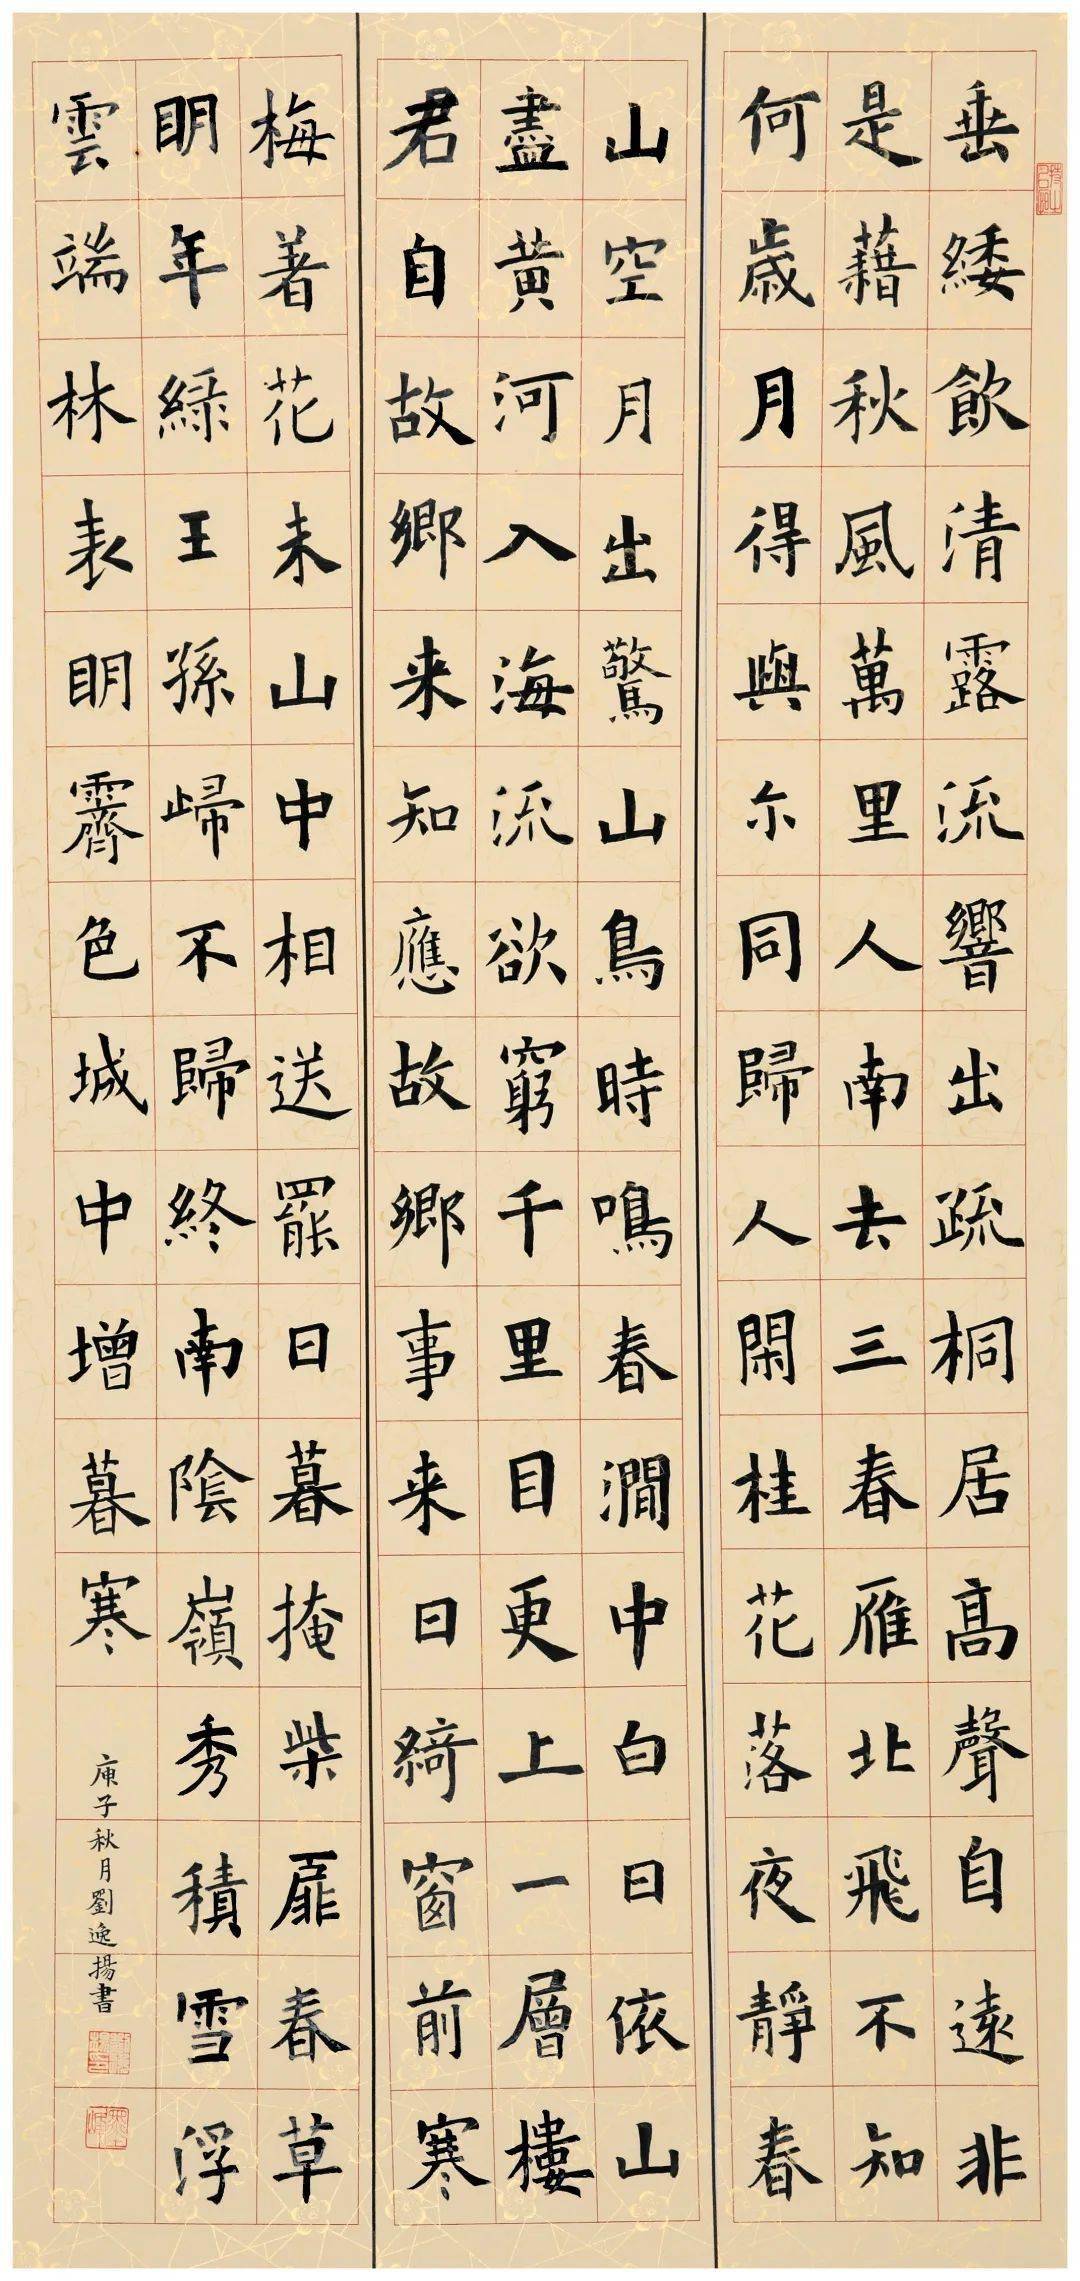 垂緌飲清露流響出疏桐居高聲自遠非
是藉秋風萬里人南去三春雁北飛不知
何歲月得與尒同歸人閑桂花落夜靜春
山空月出驚山鳥時鳴春澗中白日依山
盡黃河入海流欲窮千里目更上一層樓
君自故鄉来知應故鄉事来日綺窗前寒
梅著花未山中相送罷日暮掩柴扉春草
明年綠王孫歸不歸終南陰嶺秀積雪浮
雲端林表明霽色城中增暮寒
庚子秋月劉逸揚書